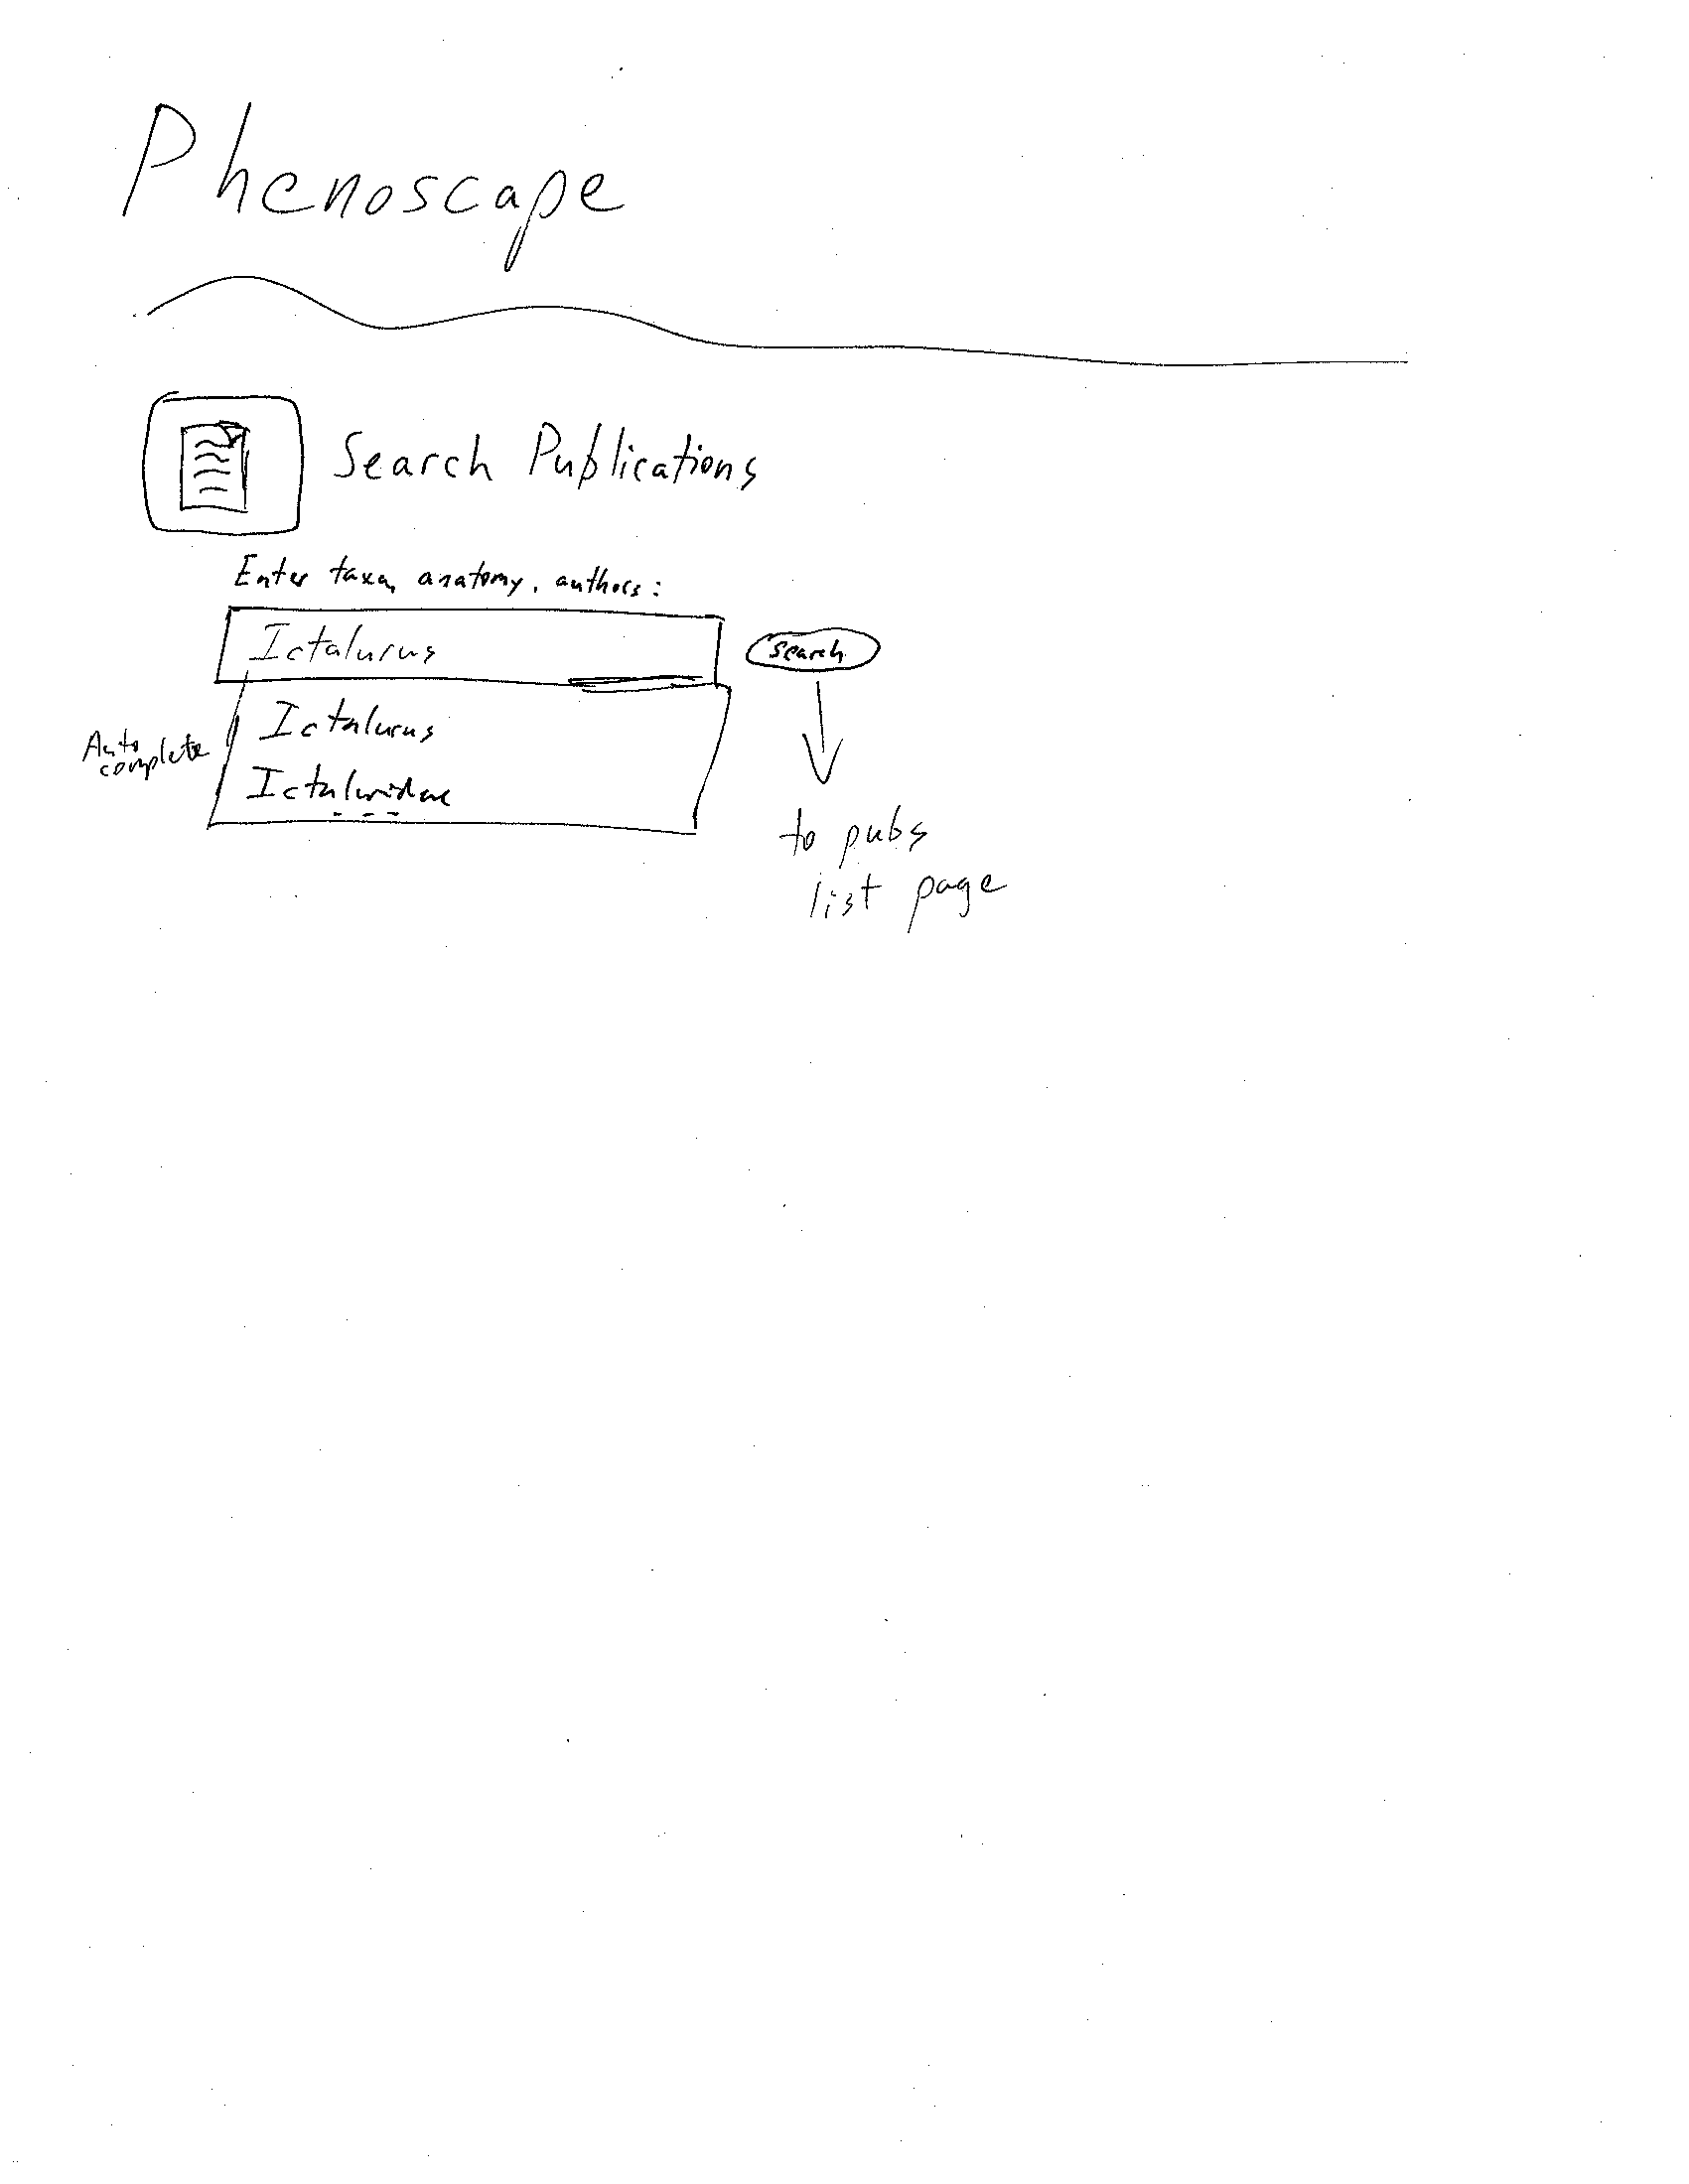 Phenoscape
Search Publications
Enter taxa, anatomy, authors:
Ictalurus
search
Ictalurus
Auto
complete
Ictaluridae
to pubs
list page